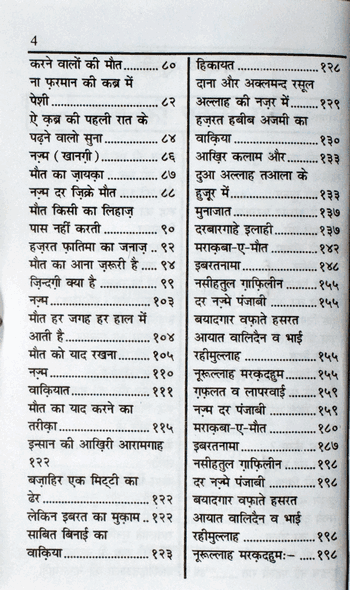 4
करने वालों की मौत..........८०
ना फ़रमान की कब्र में
पेशी......................८२
ऐ क़ब्र की पहली रात के
पढ़ने वालो सुना..............८४
नज़्म (खानगी)................८६
मौत का ज़ायक़ा...............८७
नज़्म दर ज़िक्रे मौत...........८८
मौत किसी का लिहाज़
पास नहीं करती..............९०
हज़रत फ़ातिमा का जनाज़ .. ९२
मौत का आना ज़रूरी है .... ९४
ज़िन्दगी क्या है ..............९९
नज़्म......................१०३
मौत हर जगह हर हाल में
आती है....................१०४
मौत को याद रखना..........१०५
नज़्म......................११०
वाक़ियात...................१११
मौत का याद करने का
तरीक़ा.....................११५
इन्सान की आख़िरी आरामगाह
१२२
बज़ाहिर एक मिट्टी का
ढेर.......................१२२
लेकिन इबरत का मुक़ाम ..१२२
साबित बिनाई का
वाक़िया....................१२३
हिकायत...................१२८
दाना और अक्लमन्द रसूल
अल्लाह की नज़र में.........१२९
हज़रत हबीब अजमी का
वाक़िया....................१३०
आख़िर कलाम और..........१३३
दुआ अल्लाह तआला के
हुज़ूर में...................१३३
मुनाजात...................१३७
दरबारगाहे इलाही...........१३७
मराक़बा-ए-मौत............१४२
इबरतनामा.................१४८
नसीहतुल ग़ाफ़िलीन.........१५५
दर नज़्मे पंजाबी............१५५
बयादगार वफ़ाते हसरत
आयात वालिदैन व भाई
रहीमुल्लाह.................१५५
नूरूल्लाह मरक़दहुम.........१५५
ग़फ़लत व लापरवाई.........१५९
नज्म दर पंजाबी............१५९
मराक़बा-ए-मौत............१८०
इबरतनामा.................१८७
नसीहतुल ग़ाफ़िलीन.........१९८
दर नज़्मे पंजाबी............१९८
बयादगार वफ़ाते हसरत
आयात वालिदैन व भाई
रहीमुल्लाह.................१९८
नूरूल्लाह मरक़दहुमः-.......१९८